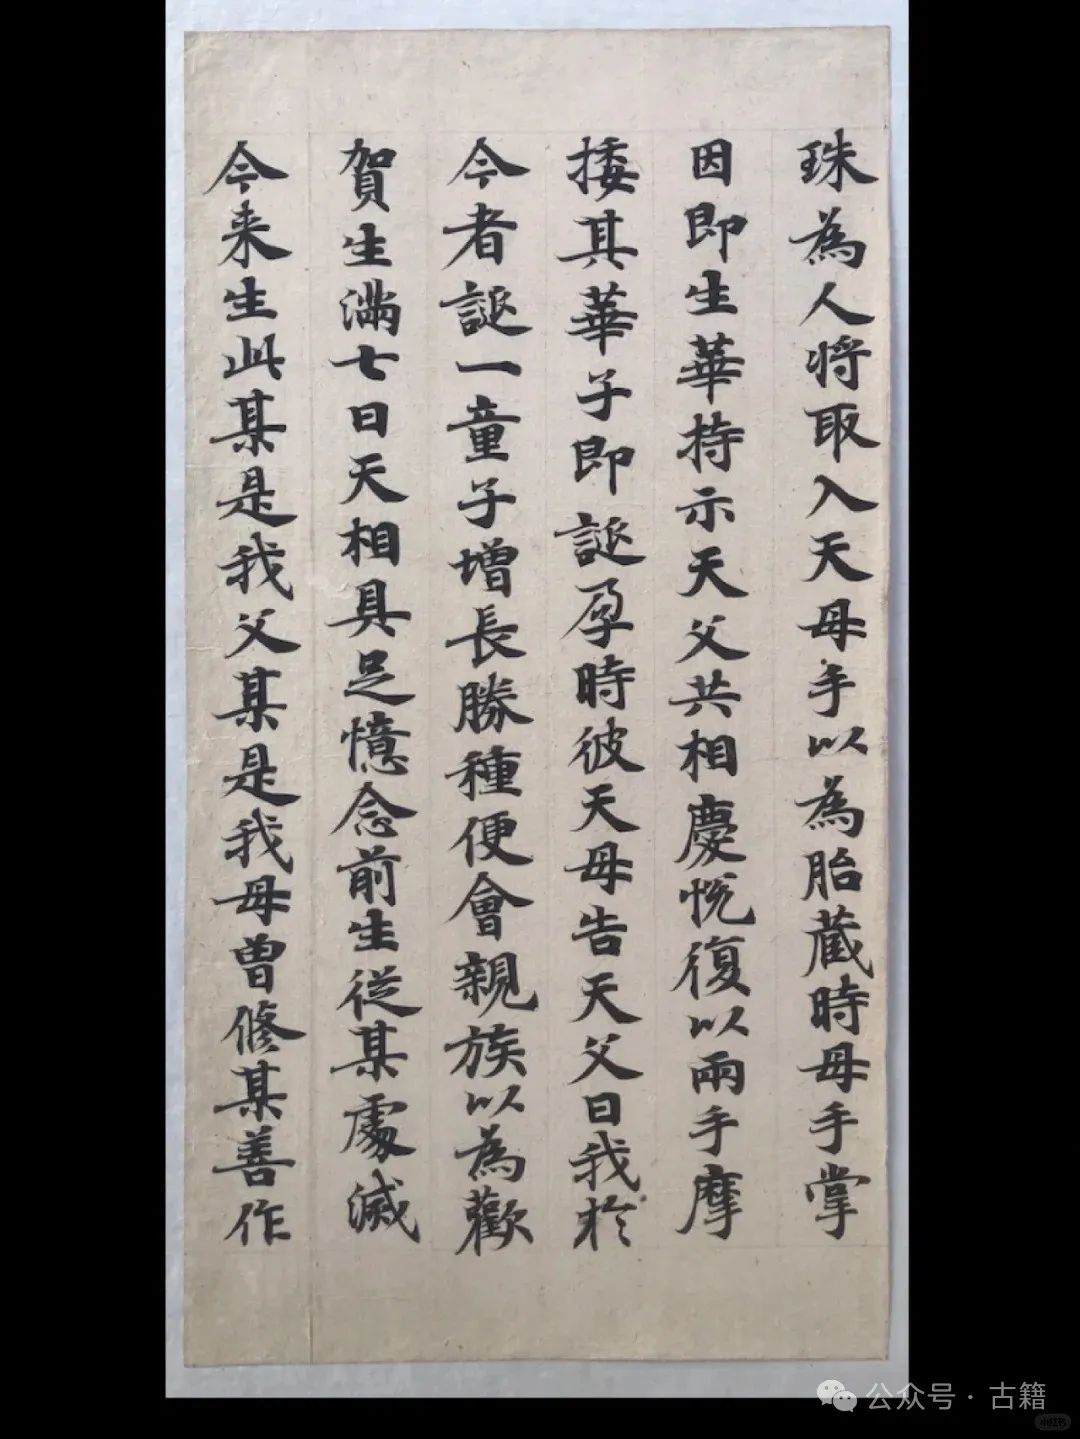 珠為人將取入天母手以為胎蔵時母手掌
因即生華持示天父共相慶悅復以兩手摩
捼其華子即誕孕時彼天母告天父曰我於
今者誕一童子增長勝種便會親族以為歡
賀生滿七日天相具足憶念前生從某處滅
今来生此某是我父某是我母曽修某善作
公众号·古籍
小红书